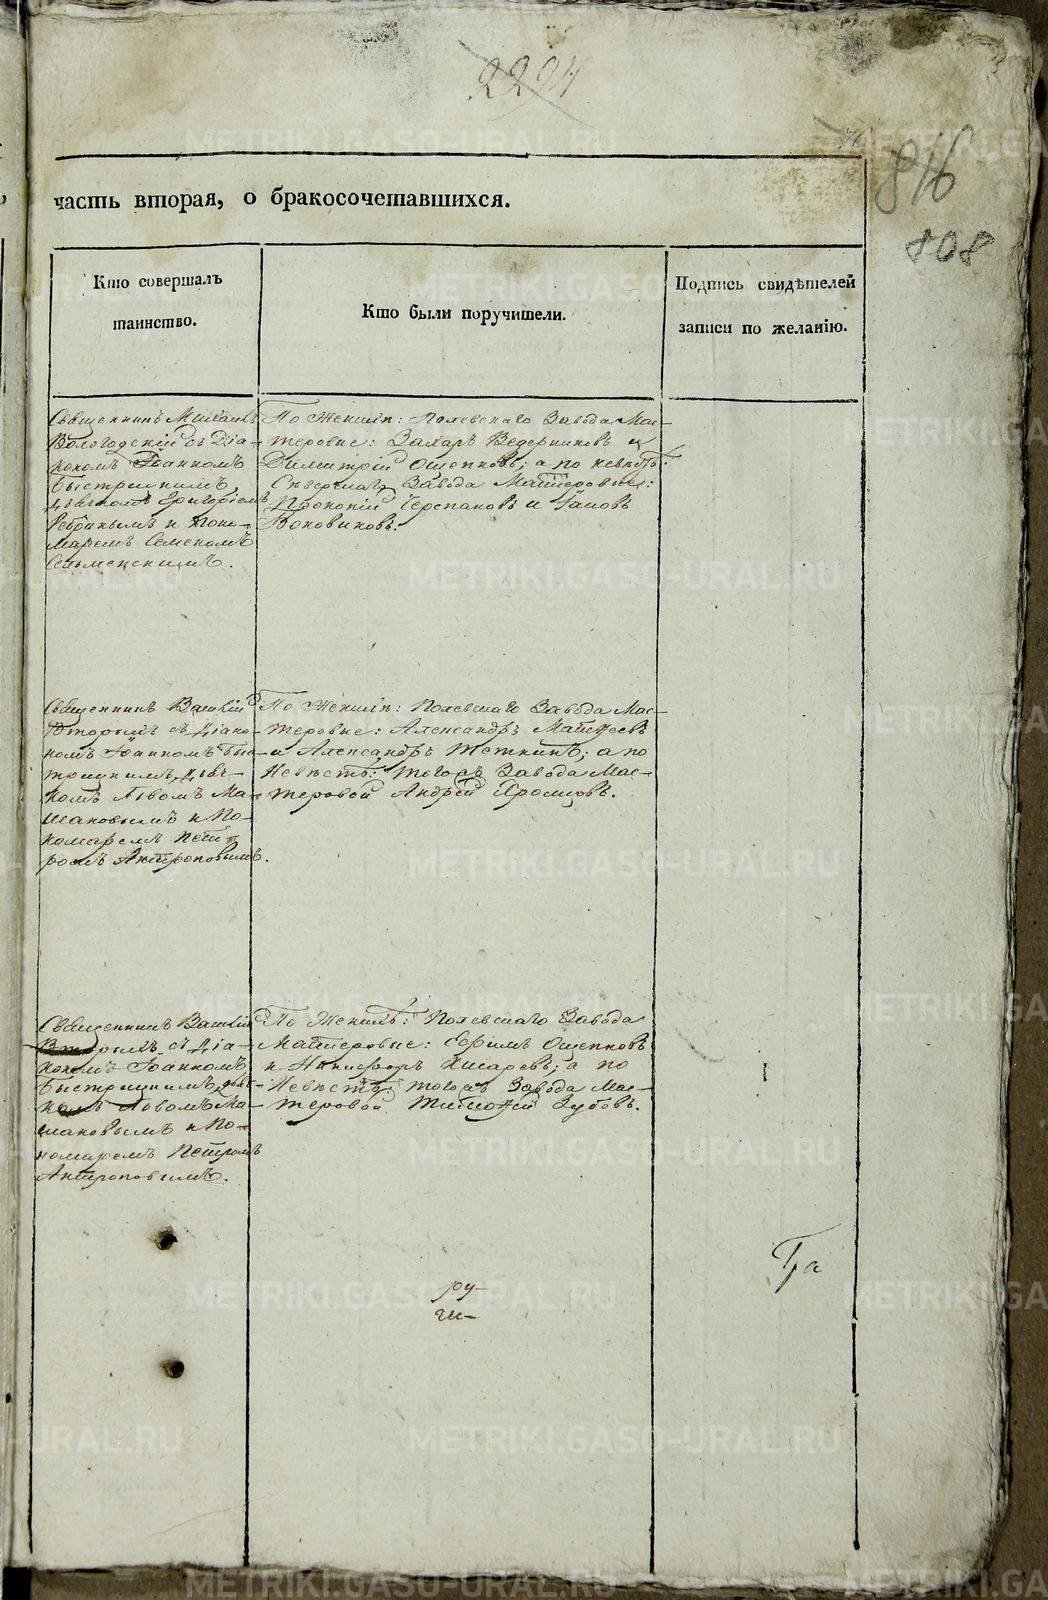 2294
76
816
808
часть вторая, о бракосочетавшихся.
Кто совершалъ
таинство.
Кто были поручители.
Подпись свидѣтелей
записи по желанію.
Священникъ Михаилъ
Вологодскій съ Діа-
кономъ Іоанномъ
Быстрицкимъ,
дьячкомъ Григоріемъ
и Поно-
маремъ Семеномъ
По Женихѣ: Полевскаго Завода Мас-
теровые: Захаръ Ведерниковъ и
Димитрій Ощепковъ; а по невѣстѣ:
Сѣверскаго Завода Мастеровые:
Прокопій Черепановъ и Іаковъ
Боковиковъ.
Священникъ Василій
Вторымъ съ Діако-
номъ Іоанномъ Быс-
трицкимъ, дьяч-
комъ Львомъ Ма-
шановымъ и По-
номаремъ Пет-
ромъ Антроповымъ.
По Женихѣ: Полевскаго Завода Мас-
теровые: Александръ Матѳеевъ
и Александръ Теткинъ; а по
Невѣстѣ: тогожъ Завода Мас-
теровой Андрей Хромцовъ.
Священникъ Василій
Вторымъ съ Діа-
кономъ Іоанномъ
Быстрицкимъ, дьяч-
комъ Львомъ Ма-
шановымъ и По-
номаремъ Петромъ
Антроповымъ.
По Женихѣ: Полевскаго Завода
Мастеровые: Ефимъ Ощепковъ
и Никифоръ Кисаревъ; а по
Невѣстѣ: тогожъ Завода Мас-
теровой Тимоѳей Зубовъ.
ру-
чи-
METRIKI.GASO-URAL.RU